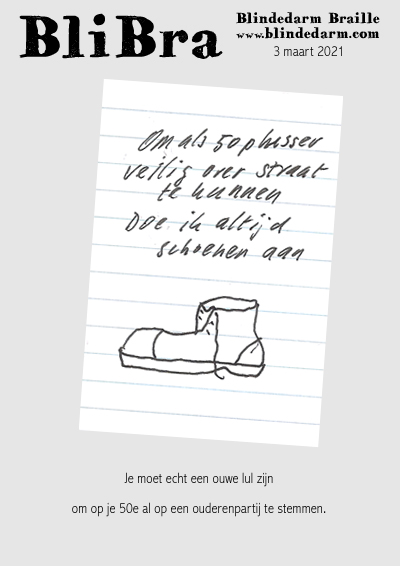 BliBra
Blindedarm Braille
www.blindedarm.com
3 maart 2021
Om als 50plusser
veilig over straat
te kunnen
Doe ik altijd
schoenen aan
Je moet echt een ouwe lul zijn
om op je 50e al op een ouderenpartij te stemmen.